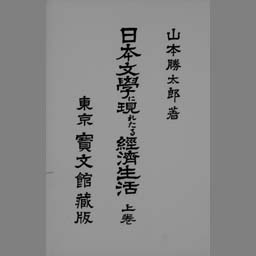 山本勝太郎著
日本文學に現れたる經濟生活 上巻
東京 寳文館藏版